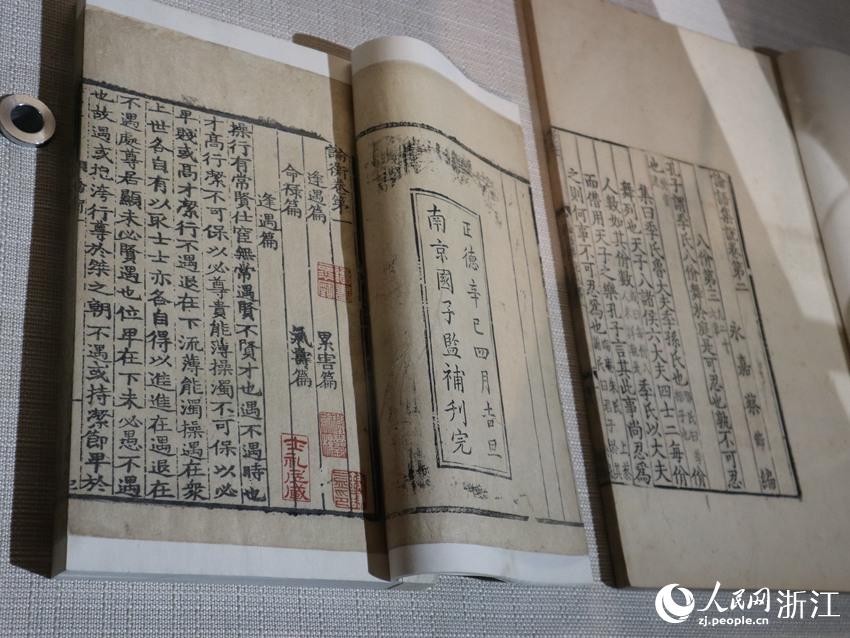 論語集說卷第二 永嘉蔡節編
八佾第三
孔子謂季氏八佾舞於庭是可忍也孰不可忍
也
集曰季氏魯大夫季孫氏也
舞列也天子八諸侯六大夫四士二每佾
人數如其佾數 季氏以大夫
而僭用天子之樂孔子言其此事尚忍爲
之則何事不可忍爲也
正德辛巳四月吉旦
南京國子監補刊完
論衡卷第一
逢遇篇 累害篇
命祿篇 氣壽篇
逢遇篇
操行有常賢仕宦無常遇賢不賢才也遇不遇時也
才髙行潔不可保以必尊貴能薄操濁不可保以必
卑賤或髙才潔行不遇退在下流薄能濁操遇在衆
上世各自有以取士士亦各自得以進進在遇退在
不遇處尊居顯未必賢遇也位卑在下未必愚不遇
也故遇或抱洿行尊於桀之朝不遇或持潔節卑於
士礼居藏
人民网 浙江
zj.people.cn